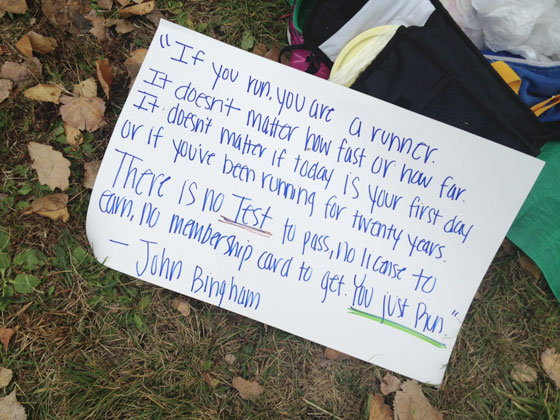 "If you run, you are a runner.
It doesn't matter how fast or how far.
It doesn't matter if today is your first day
or if you've been running for twenty years.
There is no Test to pass, no license to
earn, no membership card to get. You just Run."
— John Bingham